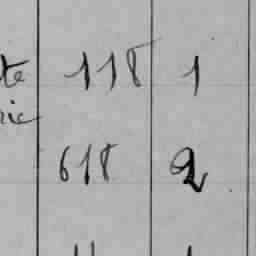 te 118 1
rie
618 2